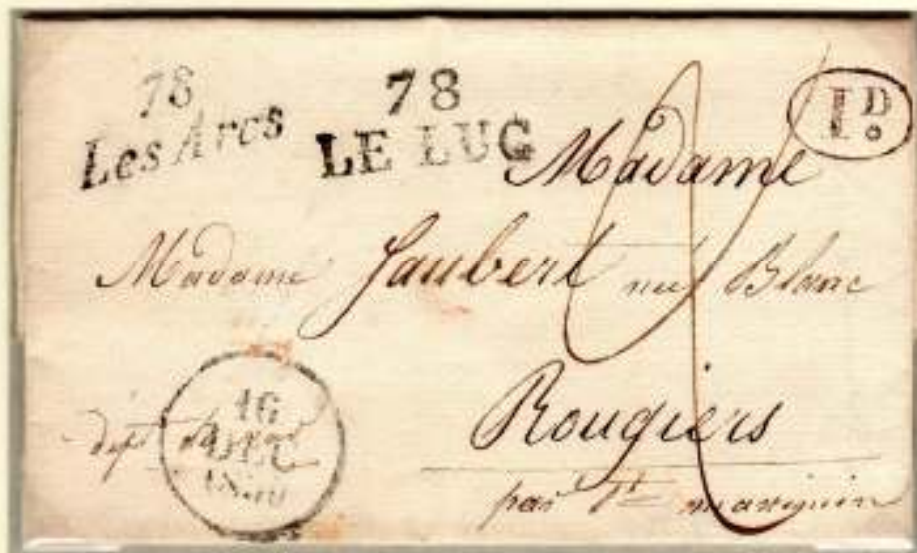 78
Les Arcs
78
LE LUC
1D
Madame
Madame Jaubert née Blanc
Rougiers
par St maximin
16
dépt